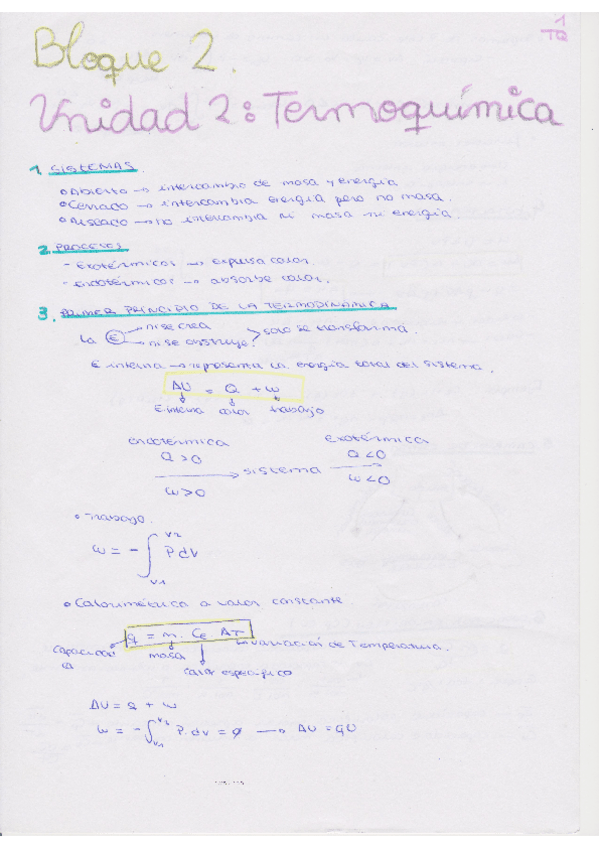 1
TQ
Bloque 2.
Unidad 2: Termoquímica
1. SISTEMAS.
• Abierto → intercambio de masa y energía
• Cerrado → intercambia energía pero no masa.
• Aislado → no intercambia ni masa ni energía.
2. PROCESOS
- Exotérmicos → expulsa calor.
- Endotérmicos → absorbe calor.
3. PRIMER PRINCIPIO DE LA TERMODINÁMICA
La E ni se crea
ni se destruye > solo se transforma.
E interna → representa la energía total del sistema.
ΔU = Q + W
E interna calor trabajo
endotérmica exotérmica
Q > 0 Q < 0
→ sistema →
W > 0 W < 0
• Trabajo.
W = - ∫ V1 V2 P dV
• Calorimétrica a calor constante
q = m · Ce · ΔT → variación de Temperatura.
masa
calor específico
ΔU = Q + W
W = - ∫ V1 V2 P. dV = ∅ → ΔU = QV